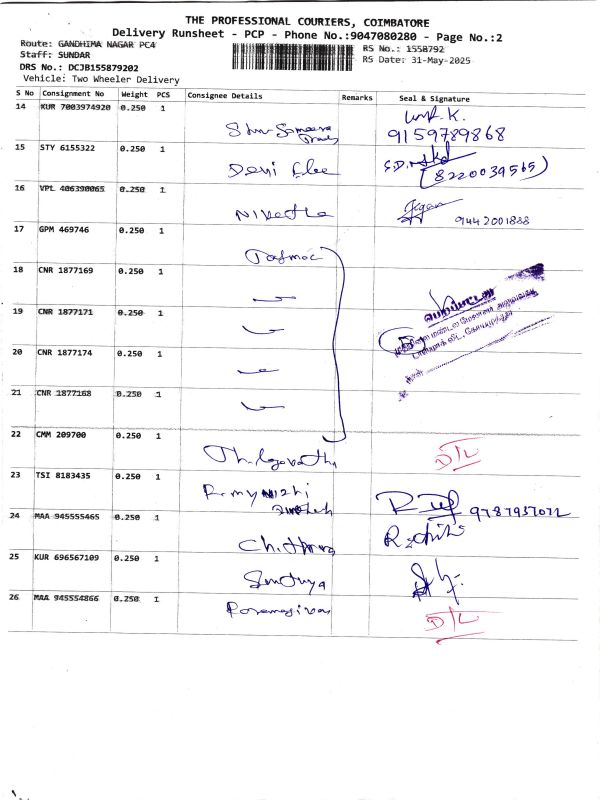 THE PROFESSIONAL COURIERS, COIMBATORE
Delivery Runsheet - PCP - Phone No.:9047080280 - Page No.:2
Route: GANDHIMA NAGAR PC4
RS No.: 1558792
Staff: SUNDAR
RS Date: 31-May-2025
DRS No.: DCJB155879202
Vehicle: Two Wheeler Delivery
S No Consignment No Weight PCS Consignee Details Remarks Seal & Signature
14 KUR 7003974920 0.250 1
9159789868
15 STY 6155322 0.250 1
Devi
(8220039565)
16 VPL 406390065 0.250 1
Nivetha
9442001888
17 GPM 469746 0.250 1
Tasmac
18 CNR 1877169 0.250 1
19 CNR 1877171 0.250 1
பெறப்பட்டது
20 CNR 1877174 0.250 1
21 CNR 1877168 0.250 1
22 CMM 209700 0.250 1
Thilagavathy
D/L
23 TSI 8183435 0.250 1
24 MAA 945555465 0.250 1
9787937072
Chithra
25 KUR 696567109 0.250 1
Sandhya
26 MAA 945554866 0.250 1
Paramasivan
D/L